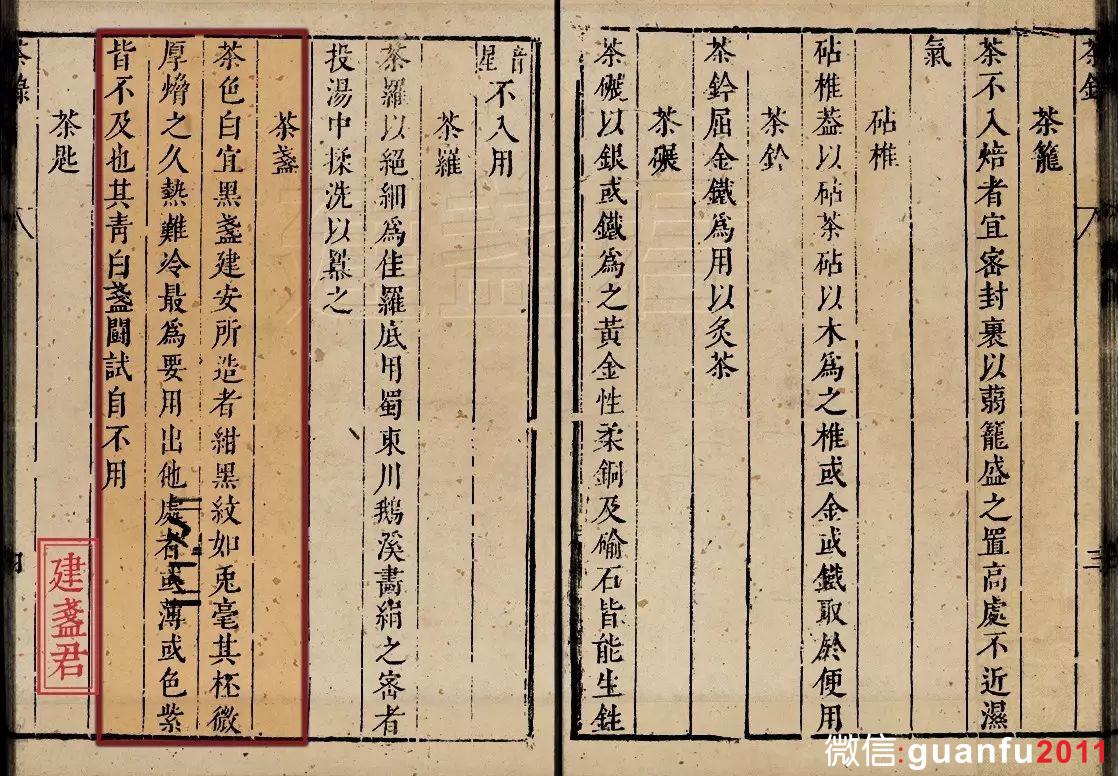 茶錄
茶籠
茶不入焙者宜密封裹以蒻籠盛之置高處不近濕
氣
砧椎
砧椎蓋以砧茶砧以木為之椎或金或鐵取於便用
茶鈐
茶鈐屈金鐵為用以炙茶
茶碾
茶碾以銀或鐵為之黃金性柔銅及鍮石皆能生鉎
音星不入用
茶羅
茶羅以絕細為佳羅底用蜀東川鵝溪畵絹之密者
投湯中揉洗以羃之
茶盞
茶色白宜黑盞建安所造者紺黑紋如兎毫其杯微
厚熁之久熱難冷最為要用出他處者或薄或色紫
皆不及也其青白盞鬭試自不用
茶匙
茶錄
建盞君
微信:guanfu2011